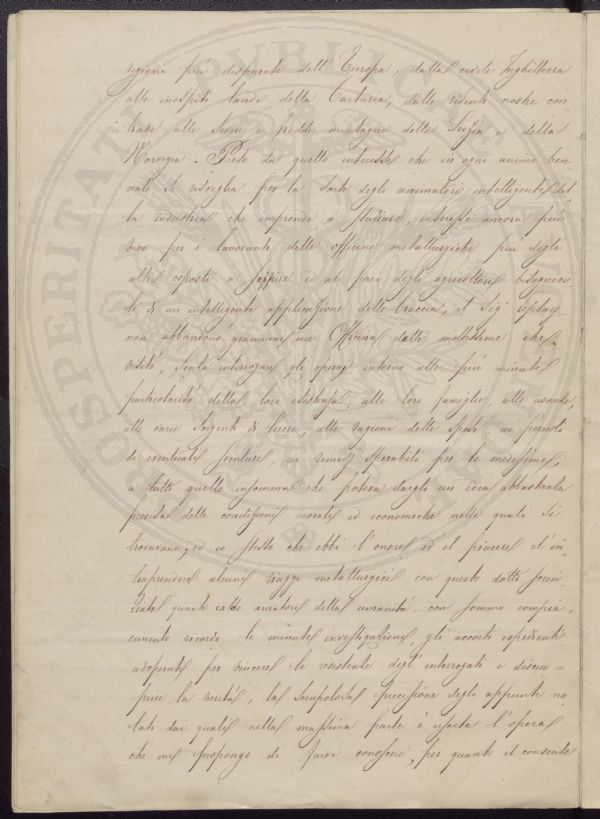 regioni più disparate dell' Europa, dalla civile Inghilterra
alle inospiti lande della Tartaria, dalle ridenti nostre con=
trade alle severe e fredde montagne della Svezia e della
Norvegia. Preso da quello interesse che in ogni animo ben
nato si risveglia per la sorte degli animatori intelligenti del=
la industria che imprende a studiare, interesse ancora più
vivo per i lavoranti delle officine metallurgiche più degli
altri esposti a soffrire ed al pari degli agricoltori bisognevo=
li di un intelligente applicazione delle braccia, il Sig.r
non abbandonò giammai una Officina delle moltissime che
visitò, senza interrogare gli operaj intorno alle più minute
particolarità della loro esistenza, alle loro famiglie, alle usanze,
alle varie sorgenti di lucro, alla ragione delle spese ai pericoli
di eventuali sventure, ai rimedj sperabili per le medesime;
a tutto quello insomma che poteva dargli un idea abbastanza
precisa delle condizioni morali ed economiche nelle quali si
trovavano; ed io stesso che ebbi l'onore ed il piacere d'in=
traprendere alcuni viaggi metallurgici con questo dotto scien=
ziato quanto caldo amatore della umanità con sommo compia=
cimento ricordo le minute investigazioni, gli accorti espedienti
adoperati per vincere le resistenze degl' interrogati e discuo=
prire la verità, la scrupolosa precisione degli appunti no
tati dai quali nella massima parte è uscita l'opera
che mi propongo di farvi conoscere, per quanto il consente
PROSPERITATI PUBLICAE